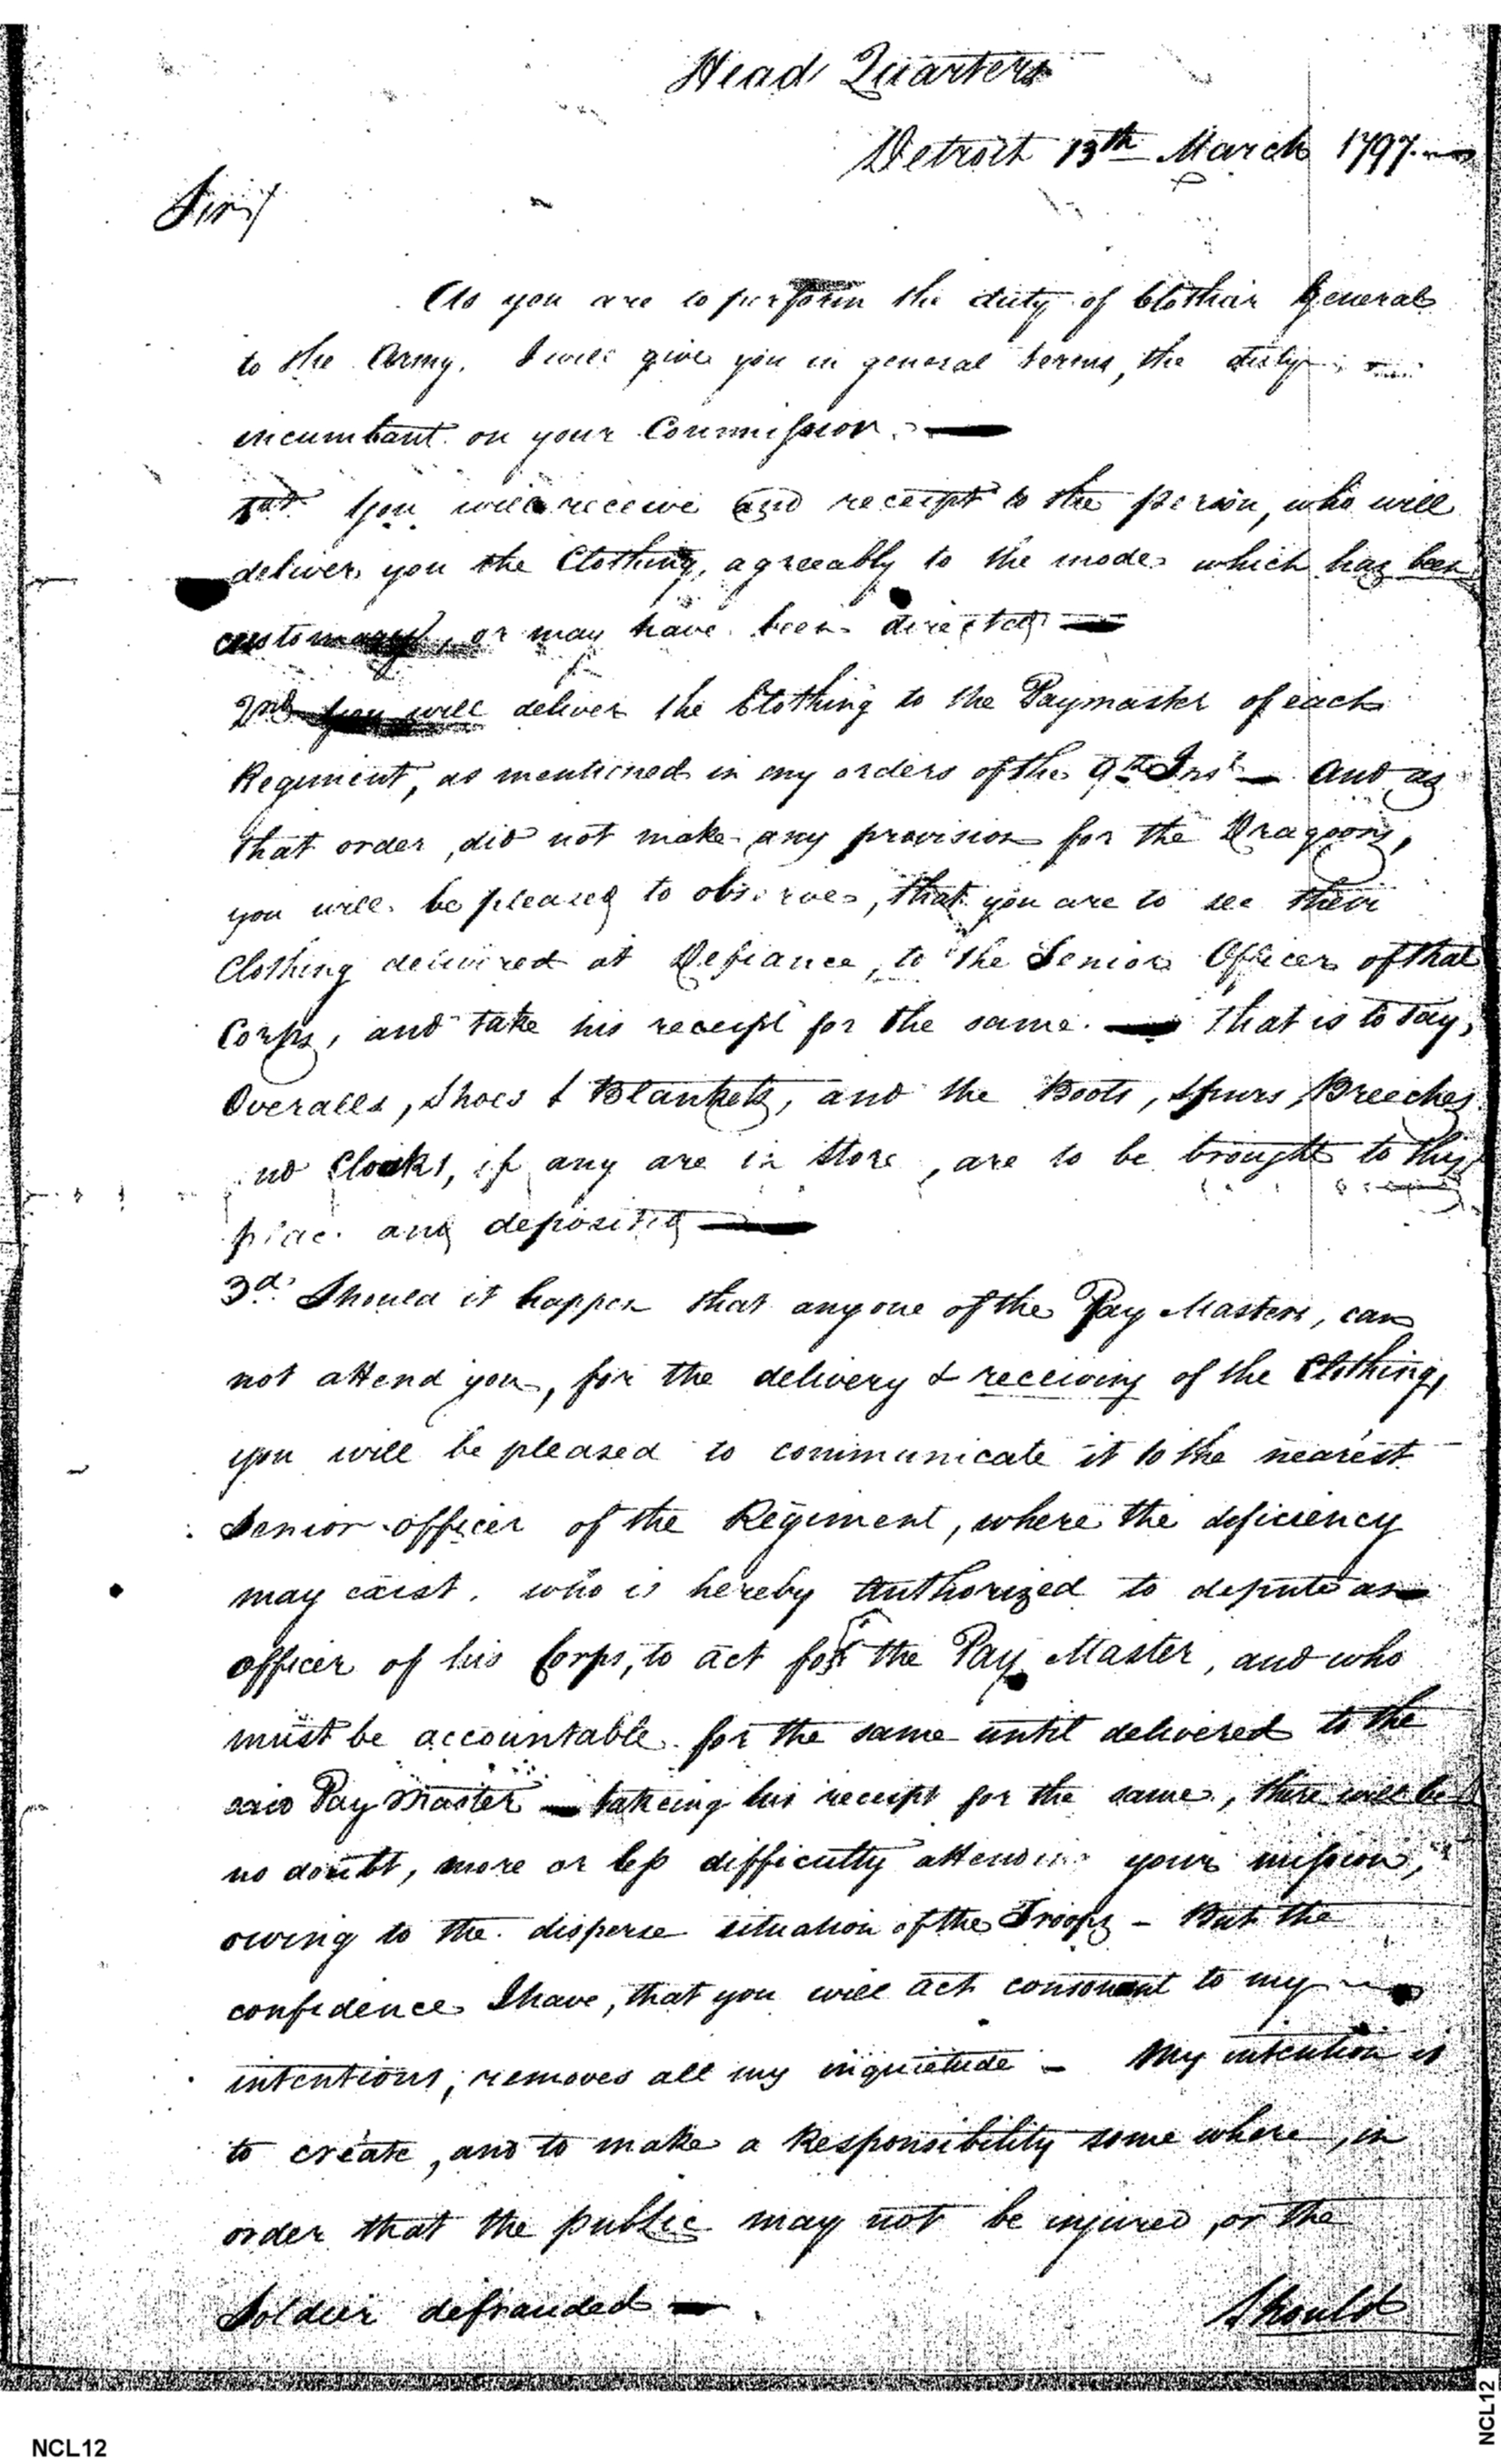 Head Quarters
Detroit 13th March 1797.
Sir,
As you are to perform the duty of Clothier General
to the Army. I will give you in general terms, the duty
incumbant on your Commission.
1st You will receive and receipt to the person, who will
deliver you the Clothing, agreeably to the mode which has been
customary, or may have been directed
2nd you will deliver the Clothing to the Paymaster of each
Regiment, as mentioned in my orders of the 9th Inst — And as
that order, did not make any provision for the Dragoons,
you will be pleased to observe, that you are to see their
Clothing delivered at Defiance, to the Senior Officer of that
Corps, and take his receipt for the same. — that is to say,
Overalls, Shoes & Blankets, and the Boots, Spurs, Breeches
nd Cloaks, if any are in Store, are to be brought to this
place and deposited —
3d. Should it happen that any one of the Pay Masters, can
not attend you, for the delivery & receiving of the Clothing,
you will be pleased to communicate it to the nearest
Senior officer of the Regiment, where the deficiency
may exist. who is hereby Authorized to depute an
officer of his Corps, to act for the Pay Master, and who
must be accountable for the same until delivered to the
said Pay Master — takeing his receipt for the same, there will be
no doubt, more or less difficulty attending your mission,
owing to the disperse situation of the Troops — But the
confidence I have, that you will act consonant to my
intentions, removes all my inquietude — My intention is
to create, and to make a Responsibility some where, in
order that the public may not be injured, or the
Soldier defrauded —
Should
NCL12
NCL12